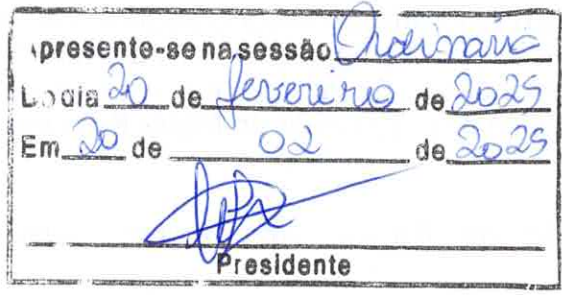 apresente-se na sessão Ordinária
Do dia 20 de fevereiro de 2025
Em 20 de 02 de 2025
Presidente